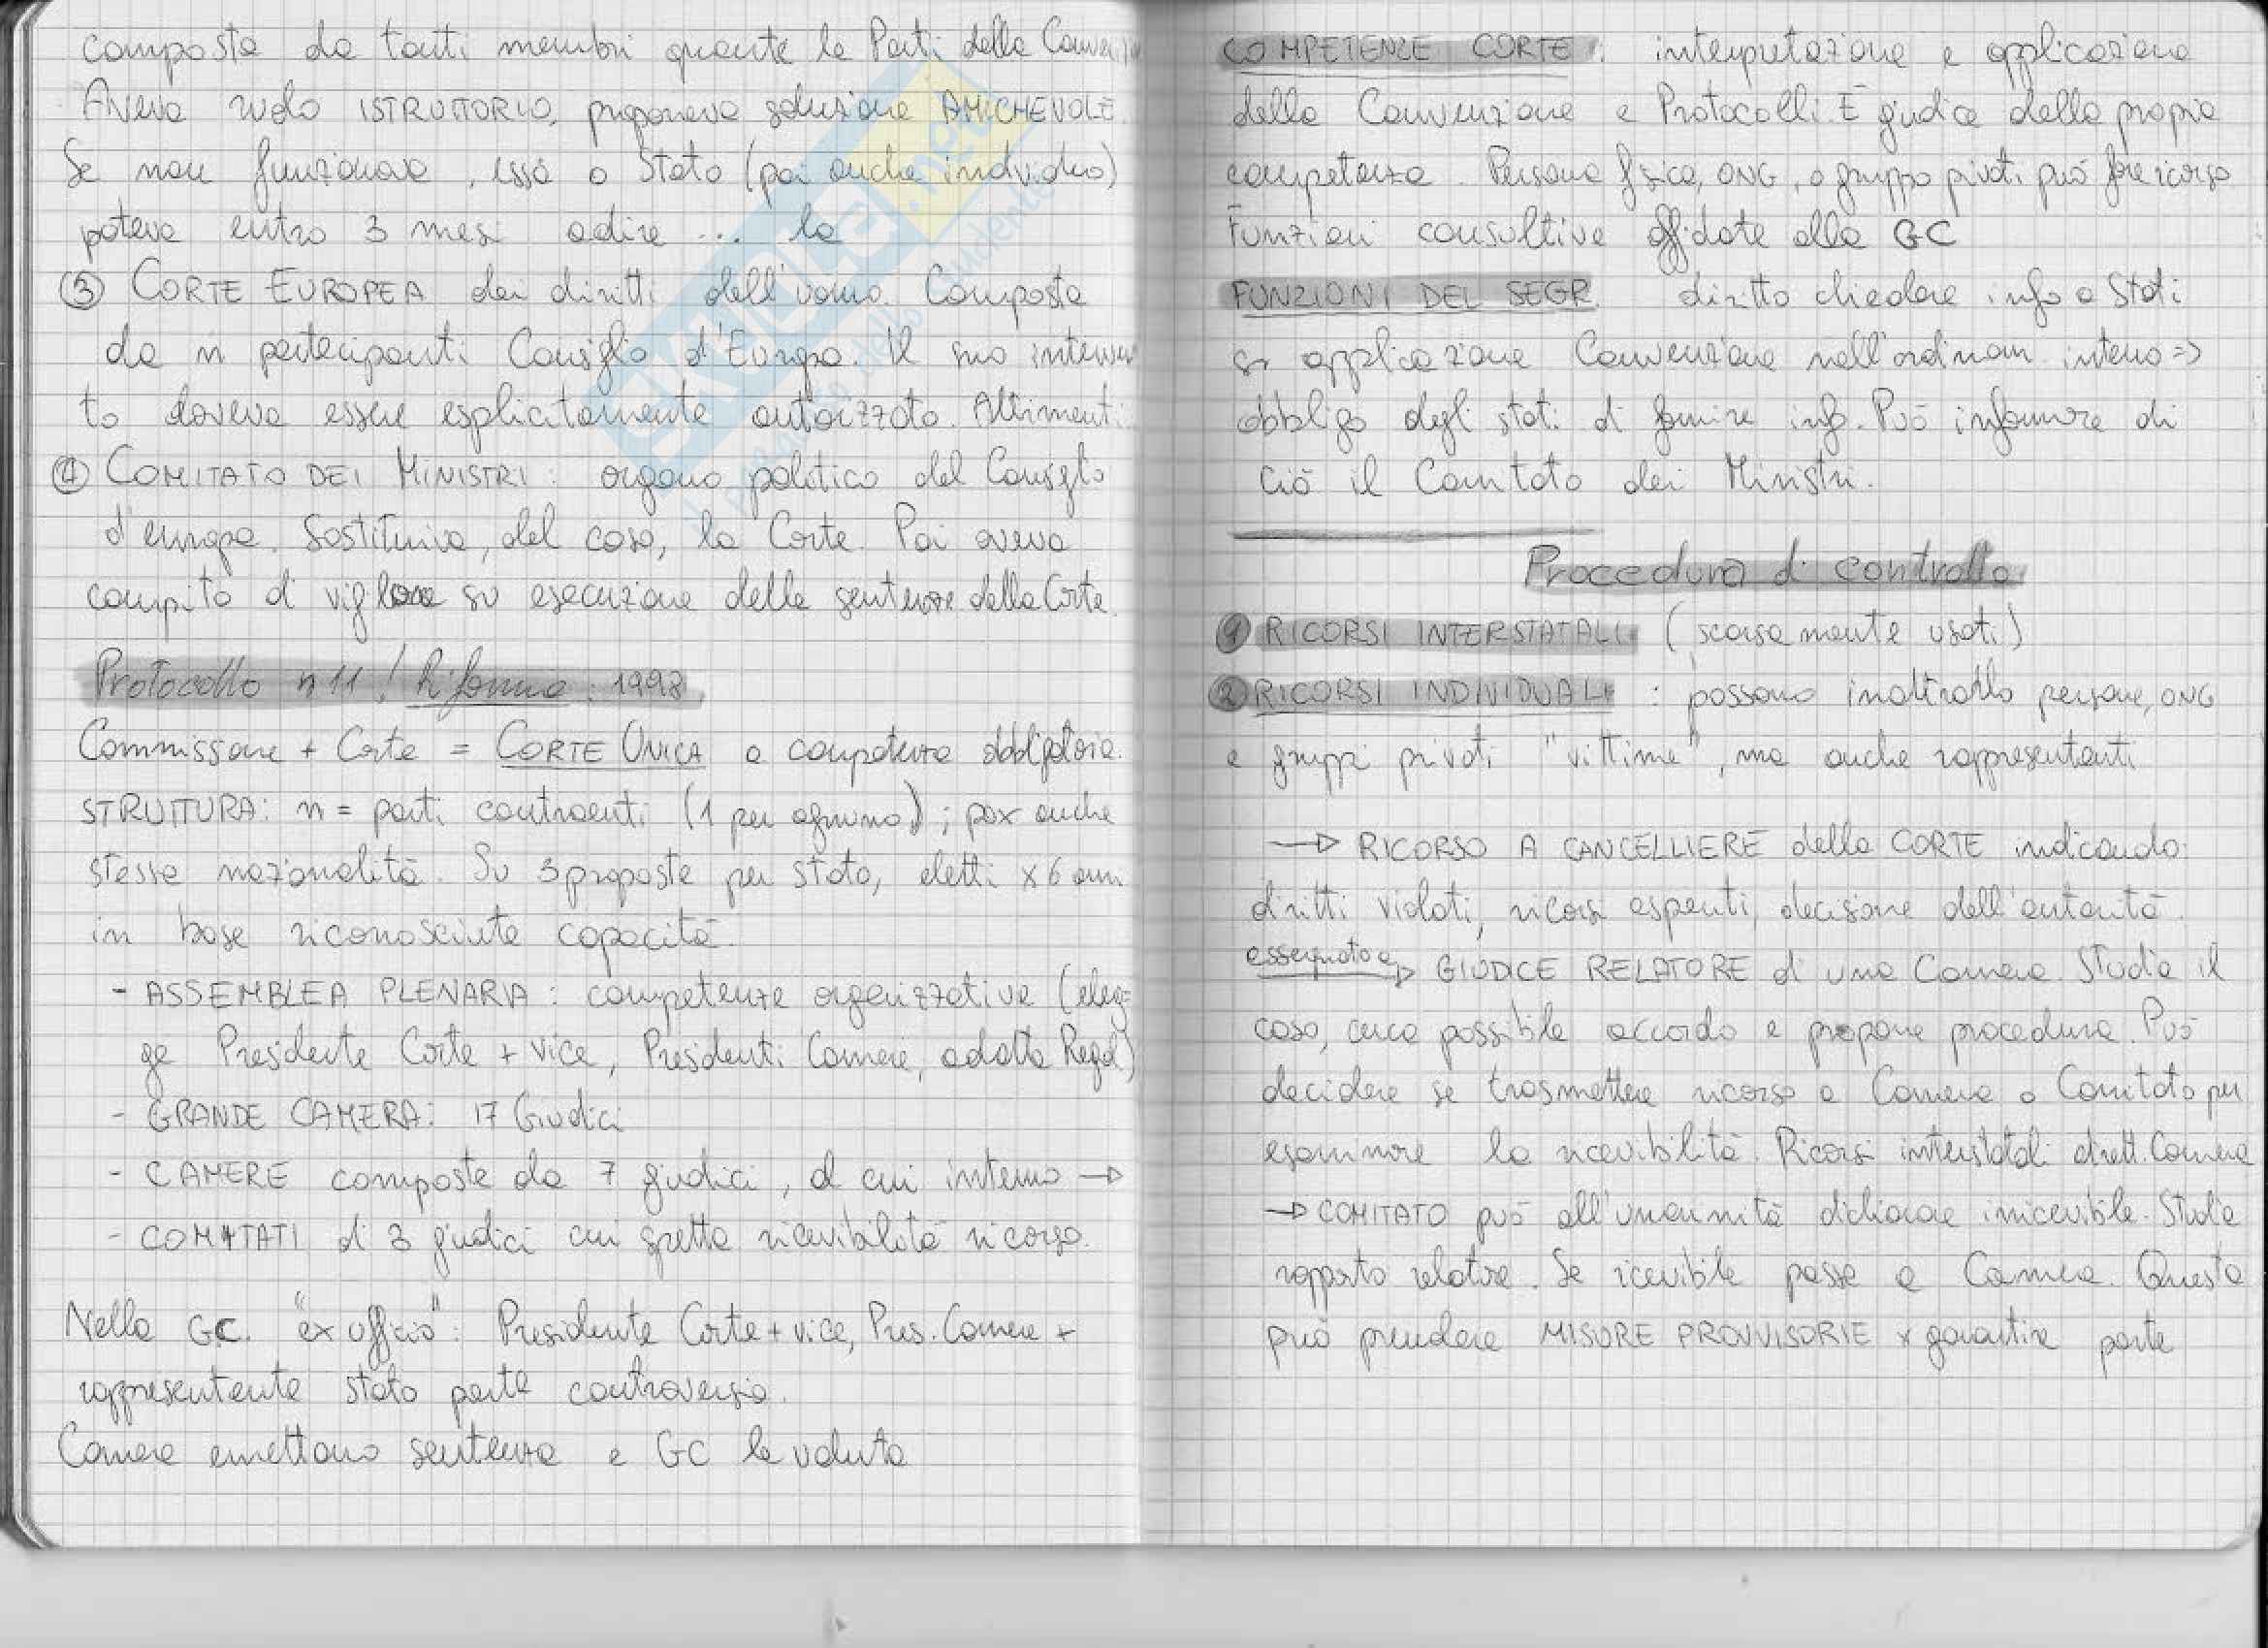 composta da tanti membri quante le Parti della Convenzione
Aveva ruolo ISTRUTTORIO, proponeva soluzione AMICHEVOLE.
Se non funzionava, essa o Stato (poi anche individuo)
poteva entro 3 mesi adire ... la
③ CORTE EUROPEA dei diritti dell'uomo. Composta
da n partecipanti Consiglio d'Europa. Il suo interven
to doveva essere esplicitamente autorizzato. Altrimenti:
④ COMITATO DEI MINISTRI: organo politico del Consiglio
d'europa. Sostituiva, del caso, la Corte. Poi aveva
compito di vigilare su esecuzione delle sentenze della Corte.
Protocollo n 11! Riforma: 1998
Commissione + Corte = CORTE UNICA a competenza obbligatoria.
STRUTTURA: n = parti contraenti (1 per ognuno); pox anche
stessa nazionalità. Su 3 proposte per stato, eletti x 6 anni
in base riconosciuta capacità.
- ASSEMBLEA PLENARIA: competenze organizzative (eleg=
ge Presidente Corte + vice, Presidenti Camere, adotta Regol)
- GRANDE CAMERA: 17 Giudici
- CAMERE composte da 7 giudici, al cui interno →
- COMITATI di 3 giudici cui spetta ricevibilità ricorso.
Nella GC. "ex officio": Presidente Corte + vice, Pres. Camere +
rappresentante stato parte controversia.
Camere emettono sentenza e GC la valuta
COMPETENZE CORTE: interpretazione e applicazione
della Convenzione e Protocolli. È giudice della propria
competenza. Persona fisica, ONG, o gruppo privati può fare ricorso
Funzioni consultive affidate alla GC
FUNZIONI DEL SEGR. diritto chiedere info a Stati
su applicazione Convenzione nell'ordinam. interno =>
obbligo degli stati di fornire info. Può informare di
ciò il Comitato dei Ministri.
Procedura di controllo
① RICORSI INTERSTATALI (scarsamente usati)
② RICORSI INDIVIDUALI: possono inoltrarlo persone, ONG
e gruppi privati "vittime", ma anche rappresentanti
→ RICORSO A CANCELLIERE della CORTE indicando:
diritti violati, ricorsi esperiti, decisione dell'autorità.
assegnato a → GIUDICE RELATORE di una Camera. Studia il
caso, cerca possibile accordo e propone procedura. Può
decidere se trasmettere ricorso a Camera o Comitato per
esaminare la ricevibilità. Ricorsi interstatali dirett. Camera
→ COMITATO può all'unanimità dichiarare irricevibile. Studia
rapporto relatore. Se ricevibile passa a Camera. Questa
può prendere MISURE PROVVISORIE x garantire parte